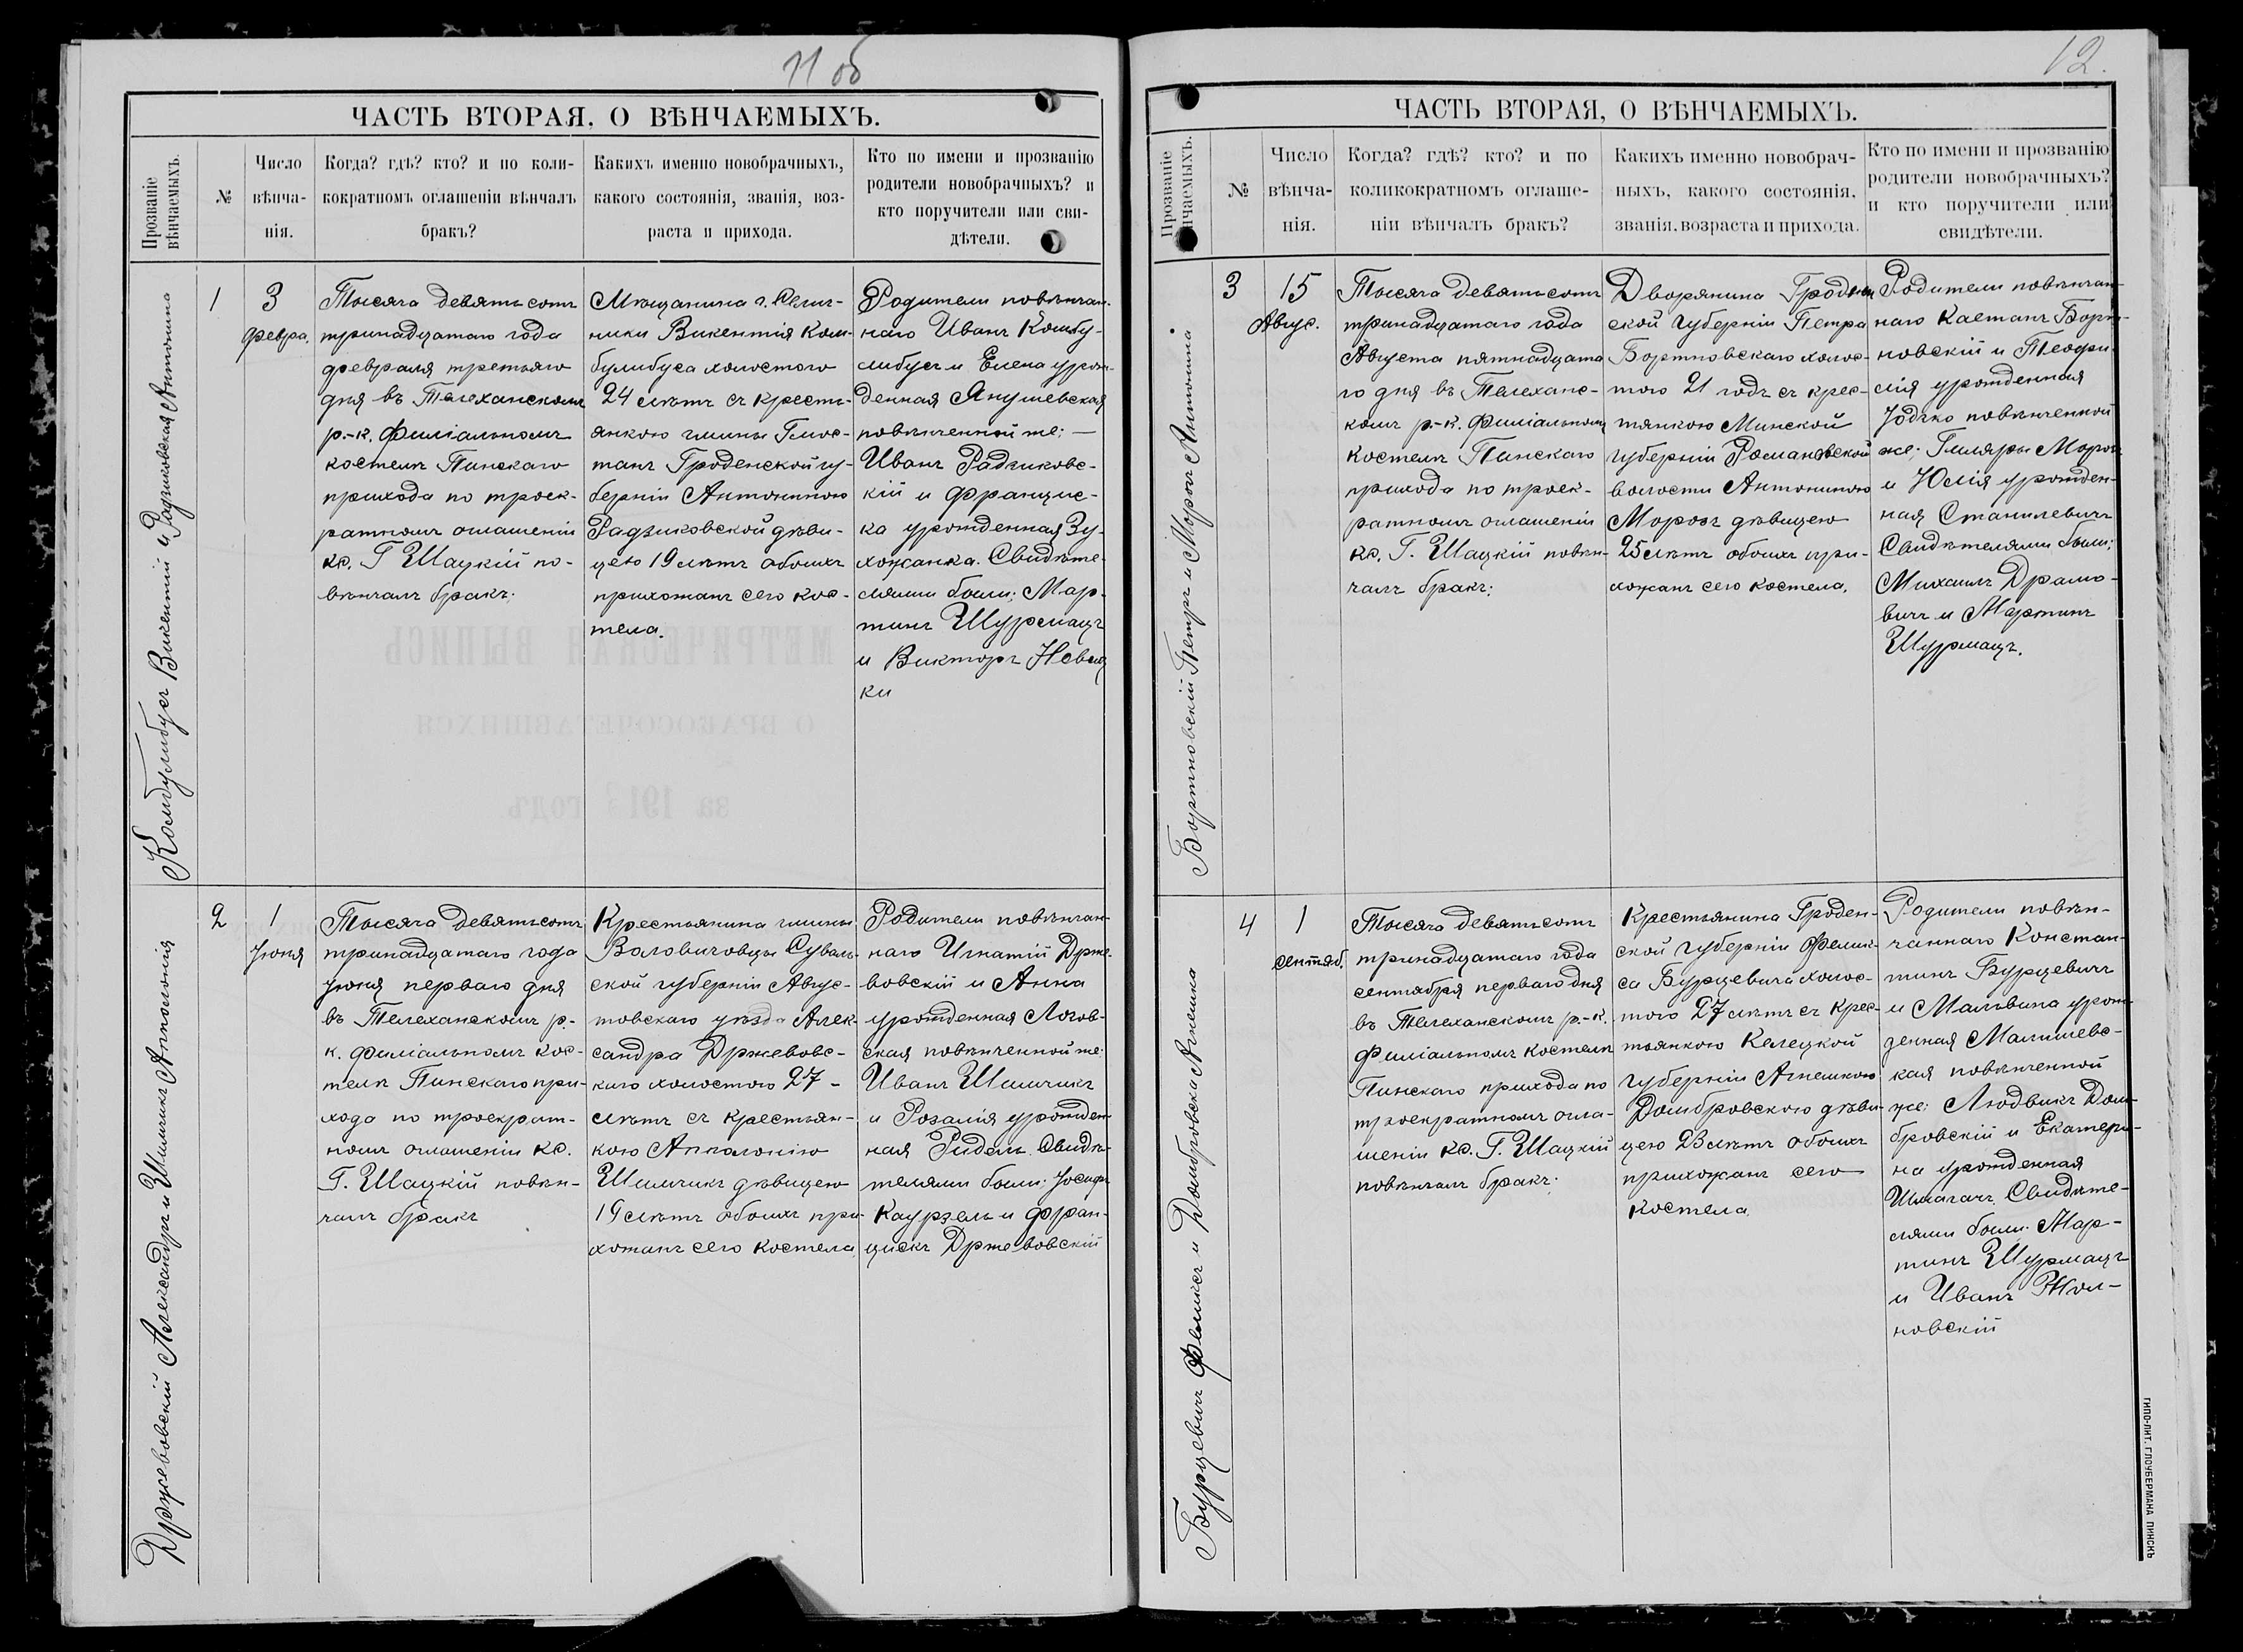 11 об
ЧАСТЬ ВТОРАЯ, О ВѢНЧАЕМЫХЪ.
Прозваніе
вѣнчаемыхъ.
№
Число
вѣнча-
нія.
Когда? гдѣ? кто? и по коли-
кократномъ оглашеніи вѣнчалъ
бракъ?
Какихъ именно новобрачныхъ,
какого состоянія, званія, воз-
раста и прихода.
Кто по имени и прозванію
родители новобрачныхъ? и
кто поручители или сви-
дѣтели.
Комбулибусъ Викентій и Радзиковская Антонина
1
3
Февра.
Тысяча девятьсотъ
тринадцатаго года
февраля третьяго
дня въ Телеханскомъ
р.-к. филіальномъ
костелѣ Пинскаго
прихода по троек-
ратномъ оглашеніи
кс. Г Шацкій по-
вѣнчалъ бракъ.
Мѣщанина г.
Викентія Ком-
булибуса холостого
24 лѣтъ съ кресть-
янкою гмины
Гроденской гу-
берніи Антониною
Радзиковской дѣви-
цею 19 лѣтъ обоихъ
прихожанъ сего кос-
тела.
Родители повѣнчан-
наго Иванъ
и Елена урож-
денная Янушевская
повѣнченной же: —
Иванъ Радзиковс-
кій и Францис-
ка урожденная Зу-
хожанка. Свидѣте-
лями были: Мар-
тинъ Шурмацъ
и Викторъ
ки
Држевовскій Александръ и Шимчикъ Аполонія
2
1
Іюня
Тысяча девятьсотъ
тринадцатаго года
Іюня перваго дня
въ Телеханскомъ р.-
к. филіальномъ кос-
телѣ Пинскаго при-
хода по троекрат-
номъ оглашеніи кс.
Г. Шацкій повѣн-
чалъ бракъ
Крестьянина гмины
Воловичовцы Суваль-
ской губерніи Авгус-
товскаго уѣзда Алек-
сандра Држевовс-
каго холостого 27 -
лѣтъ съ крестьян-
кою Апполонію
Шимчикъ дѣвицею
19 лѣтъ обоихъ при-
хожанъ сего костела
Родители повѣнчан-
наго Игнатій Држе-
вовскій и Анна
урожденная Логов-
ская повѣнченной же:
Иванъ Шимчикъ
и Розалія урожден-
ная Ридель. Свидѣ-
телями были: Іосифъ
Каурзель и Фран-
цискъ Држевовскій
12.
ЧАСТЬ ВТОРАЯ, О ВѢНЧАЕМЫХЪ.
Прозваніе
вѣнчаемыхъ.
№
Число
вѣнча-
нія.
Когда? гдѣ? кто? и по
коликократномъ оглаше-
ніи вѣнчалъ бракъ?
Какихъ именно новобрач-
ныхъ, какого состоянія,
званія, возраста и прихода.
Кто по имени и прозванію
родители новобрачныхъ?
и кто поручители или
свидѣтели.
Бортновскій Петръ и Морозъ Антонина
3
15
Авгус.
Тысяча девятьсотъ
тринадцатаго года
Августа пятнадцата
го дня въ Телеханс-
комъ р.-к. филіальномъ
костелѣ Пинскаго
прихода по троек-
ратномъ оглашеніи
кс. Г. Шацкій повѣн-
чалъ бракъ:
Дворянина Гроднен
ской губерніи Петра
Бортновскаго холос-
того 21 годъ съ крес-
тянкою Минской
губерніи Романовской
волости Антониною
Морозъ дѣвицею
25 лѣтъ обоихъ при-
хожанъ сего костела.
Родители повѣнчан-
наго Каетанъ Борт-
новскій и Теофи-
лія урожденная
Юдчко повѣнченной
же: Гиляры Морозъ
и Юлія урожден-
ная Станилевичъ
Свидѣтелями были:
Михаилъ Драмо-
вичъ и Мартинъ
Шурмацъ.
Бурцевичъ Феликсъ и Домбровска Агнешка
4
1
сентяб.
Тысяча девятьсотъ
тринадцатаго года
сентября перваго дня
въ Телеханскомъ р.-к.
филіальномъ костелѣ
Пинскаго прихода по
троекратномъ огла-
шеніи кс. Г. Шацкій
повѣнчалъ бракъ:
Крестьянина Гроден-
ской губерніи Фелик-
са Бурцевича холос-
того 27 лѣтъ съ крес-
тьянкою Келецкой
губерніи Агнешкою
Домбровскою дѣви-
цею 23 лѣтъ обоихъ
прихожанъ сего
костела.
Родители повѣн-
чаннаго Констан-
тинъ Бурцевичъ
и Мальвина урож-
денная Малишевс-
кая повѣнченной
же: Людвикъ Дом-
бровскій и Екатери-
на урожденная
Шмагачъ. Свидѣте-
лями были: Мар-
тинъ Шурмацъ
и Иванъ Жол-
новскій
ТИПО-ЛИТ. ГЛОУБЕРМАНА ПИНСКЪ